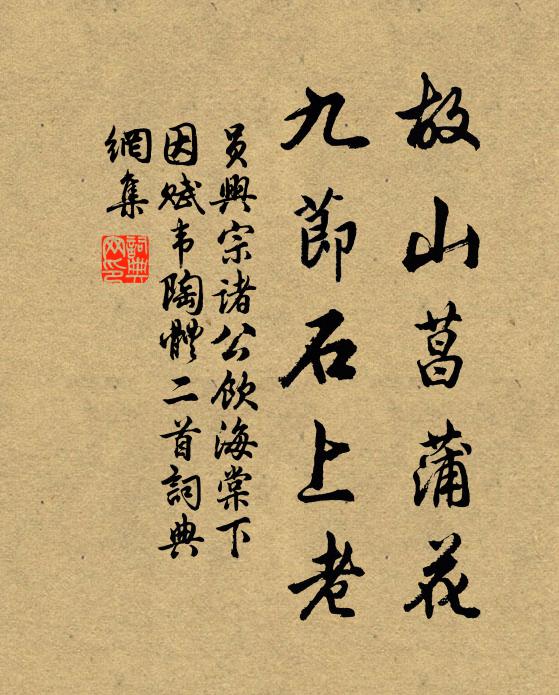 故山菖蒲花
九節石上老
員興宗諸公飲海棠下
因賦韦陶體二首詞典
網集
詞典網印